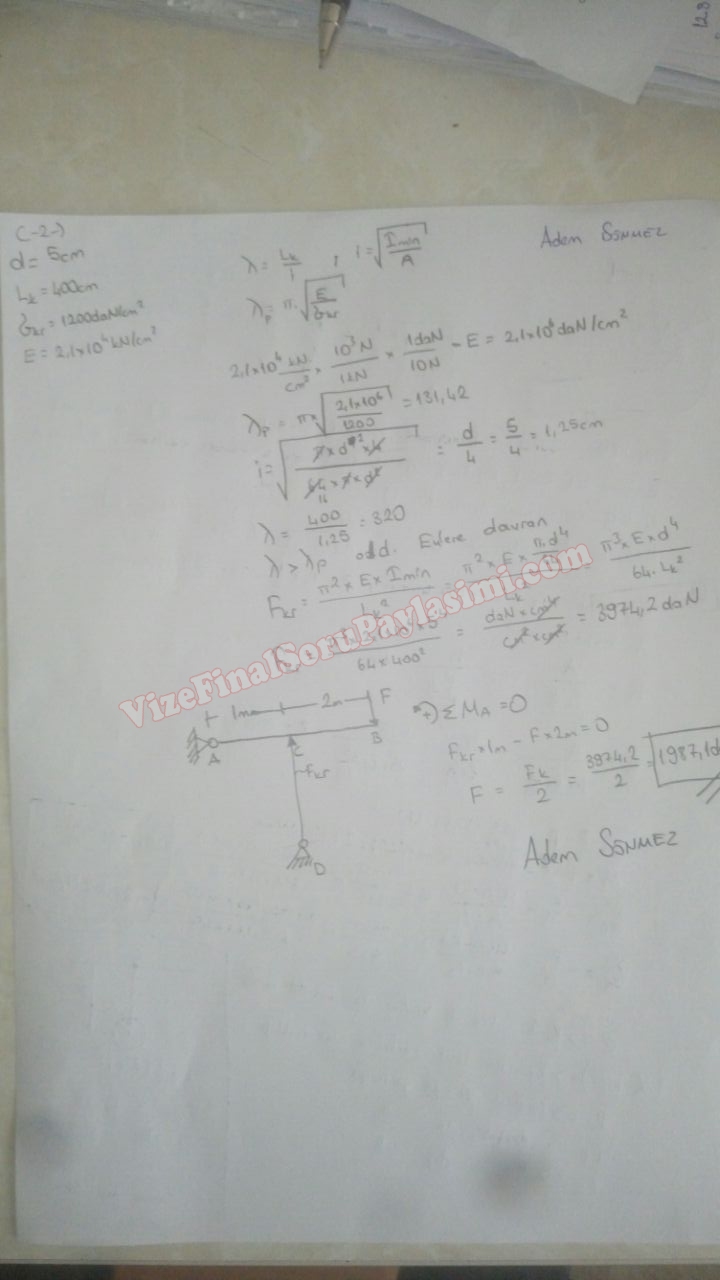 12.3
C-2-)
Adem SÖNMEZ
d = 5cm
Lk = 400cm
σkr = 1200daN/cm²
E = 2,1x10⁴ kN/cm²
λ = Lk/i , i = √(Imin/A)
λp = π.√(E/σkr)
2,1x10⁴ kN/cm² x 10³N/1kN x 1daN/10N - E = 2,1x10⁶ daN/cm²
λp = πx√(2,1x10⁶/1200) = 131,42
= d/4 = 5/4 = 1,25cm
λ = 400/1,25 = 320
λ > λp old. Eulere davran
Fkr = π² x E x Imin / Lk² = π² x E x π.d⁴ = π³ x E x d⁴ / 64.Lk²
64 x 400² = daN x cm⁴ / cm² x cm² = 3974,2 daN
VizeFinalSoruPaylasimi.com
1m 2m F
A C B
Fkr
D
+) ΣMA = 0
Fkr x 1m - F x 2m = 0
F = Fk/2 = 3974,2/2 = 1987,1d
Adem SÖNMEZ